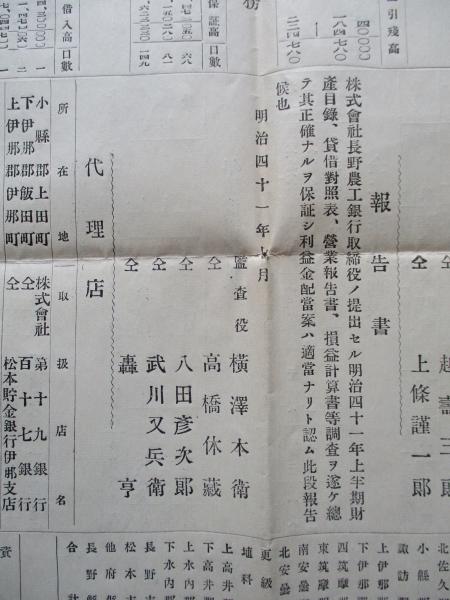 一引殘高
四〇〇〇〇
一八四七八〇
二二四七八〇
保証高
口數
借入高
口數
仝
上條謹一郎
報告書
株式會社長野農工銀行取締役ノ提出セル明治四十一年上半期財
產目錄、貸借對照表、營業報告書、損益計算書等調查ヲ遂ケ總
テ其正確ナルヲ保証シ利益金配當案ハ適當ナリト認ム此段報告
候也
明治四十一年七月
監查役 橫澤本衛
仝 高橋休藏
仝 八田彥次郎
仝 武川又兵衛
仝 轟亨
代理店
所在地 取扱店名
小縣郡上田町 株式會社 第十九銀行
下伊那郡飯田町 仝 百十七銀行
上伊那郡伊那町 仝 松本貯金銀行伊那支店
北佐久
小縣
諏訪
上伊那
下伊那
西筑摩
東筑摩
南安曇
北安曇
更級
埴科
上高井
下高井
上水內
下水內
長野市
松本市
他府縣
長野縣
合計
資